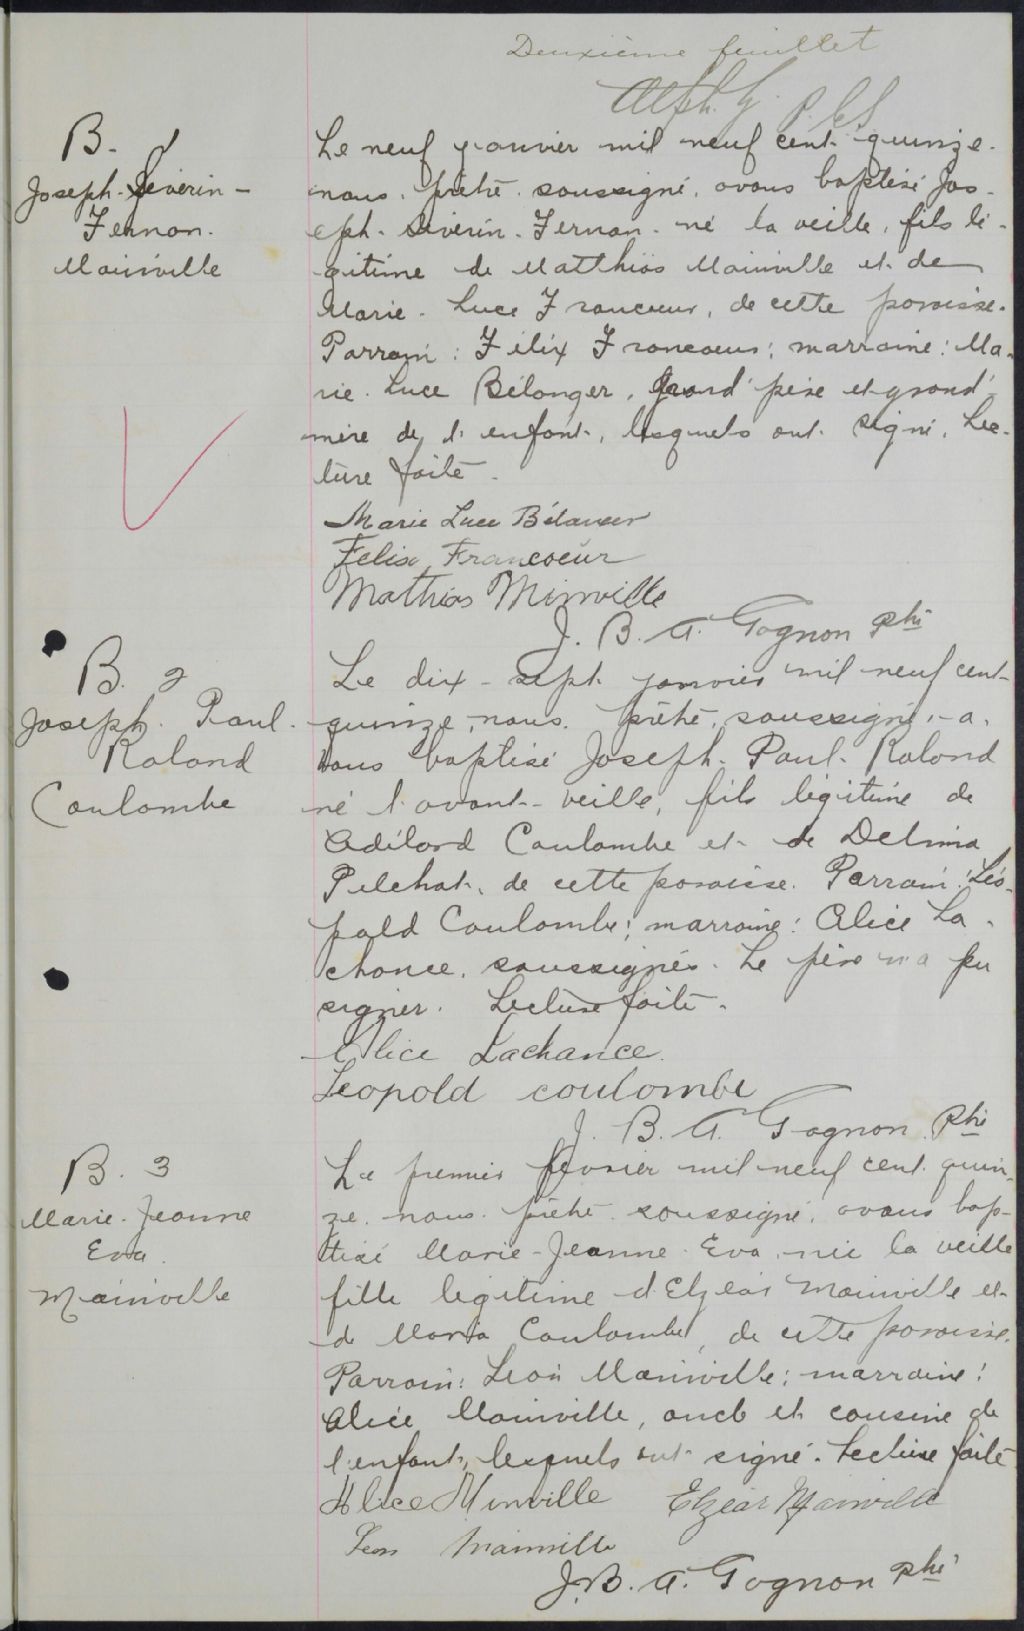 Deuxième feuillet
Alph. G. P. C. S.
B. 1
Joseph-Séverin-
Fernan.
Mainville
Le neuf janvier mil neuf cent quinze.
nous, prêtre soussigné, avons baptisé Jos-
eph-Séverin-Fernan. né la veille, fils lé-
gitime de Matthias Mainville et de
Marie-Luce Francoeur, de cette paroisse.
Parrain: Félix Francoeur; marraine: Ma-
rie-Luce Bélanger, grand'père et grand'
mère de l'enfant, lesquels ont signé. Lec-
ture faite.
Marie Luce Bélanger
Felix Francoeur
Mathias Minville
J. B. A. Gagnon Ptre
B. 2
Joseph. Paul.
Roland
Coulombe
Le dix-sept janvier mil neuf cent-
quinze, nous, prêtre, soussigné, a-
vons baptisé Joseph-Paul-Roland
né l'avant-veille, fils légitime de
Adélard Coulombe et de Delima
Pelchat, de cette paroisse. Parrain: Léo-
pold Coulombe; marraine: Alice La-
chance, soussignés. Le père n'a pu
signer. Lecture faite.
Alice Lachance.
Leopold coulombe
J. B. A. Gagnon. Ptre
B. 3
Marie-Jeanne
Eva.
Mainville
Le premier février mil neuf cent quin-
ze. nous. prêtre soussigné, avons bap-
tisé Marie-Jeanne Eva, née la veille
fille légitime d'Elzéar Mainville et
de Maria Coulombe, de cette paroisse.
Parrain: Léon Mainville; marraine:
Alice Mainville, oncle et cousine de
l'enfant, lesquels ont signé. Lecture faite
Alice Minville Elzéar Mainville
Leon Mainville
J. B. A. Gagnon Ptre